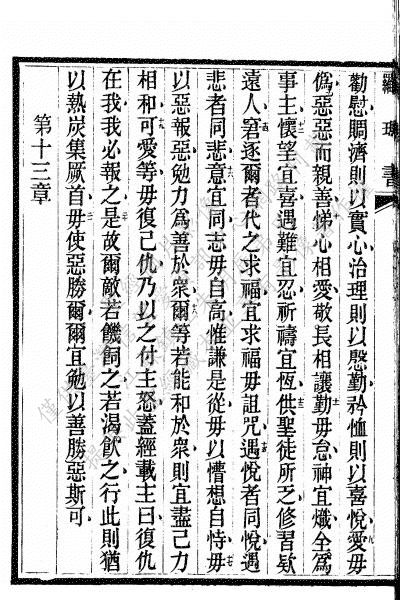 羅瑪書
勸慰賙濟則以實心治理則以慇勤矜恤則以喜悅愛毋
偽惡惡而親善悌心相愛敬長相讓勤毋怠神宜熾全為
事主懷望宜喜遇難宜忍祈禱宜恆供聖徒所乏修習欵
遠人窘逐爾者代之求福宜求福毋詛咒遇悅者同悅遇
悲者同悲意宜同志毋自高惟謙是從毋以懵想自恃毋
以惡報惡勉力為善於衆爾等若能和於衆則宜盡己力
相和可愛等毋復己仇乃以之付主怒蓋經載主曰復仇
在我我必報之是故爾敵若饑飼之若渴飲之行此則猶
以熱炭集厥首毋使惡勝爾爾宜勉以善勝惡斯可
第十三章